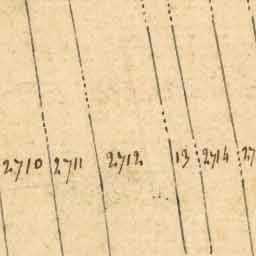 2710 2711 2712 13 2714 27